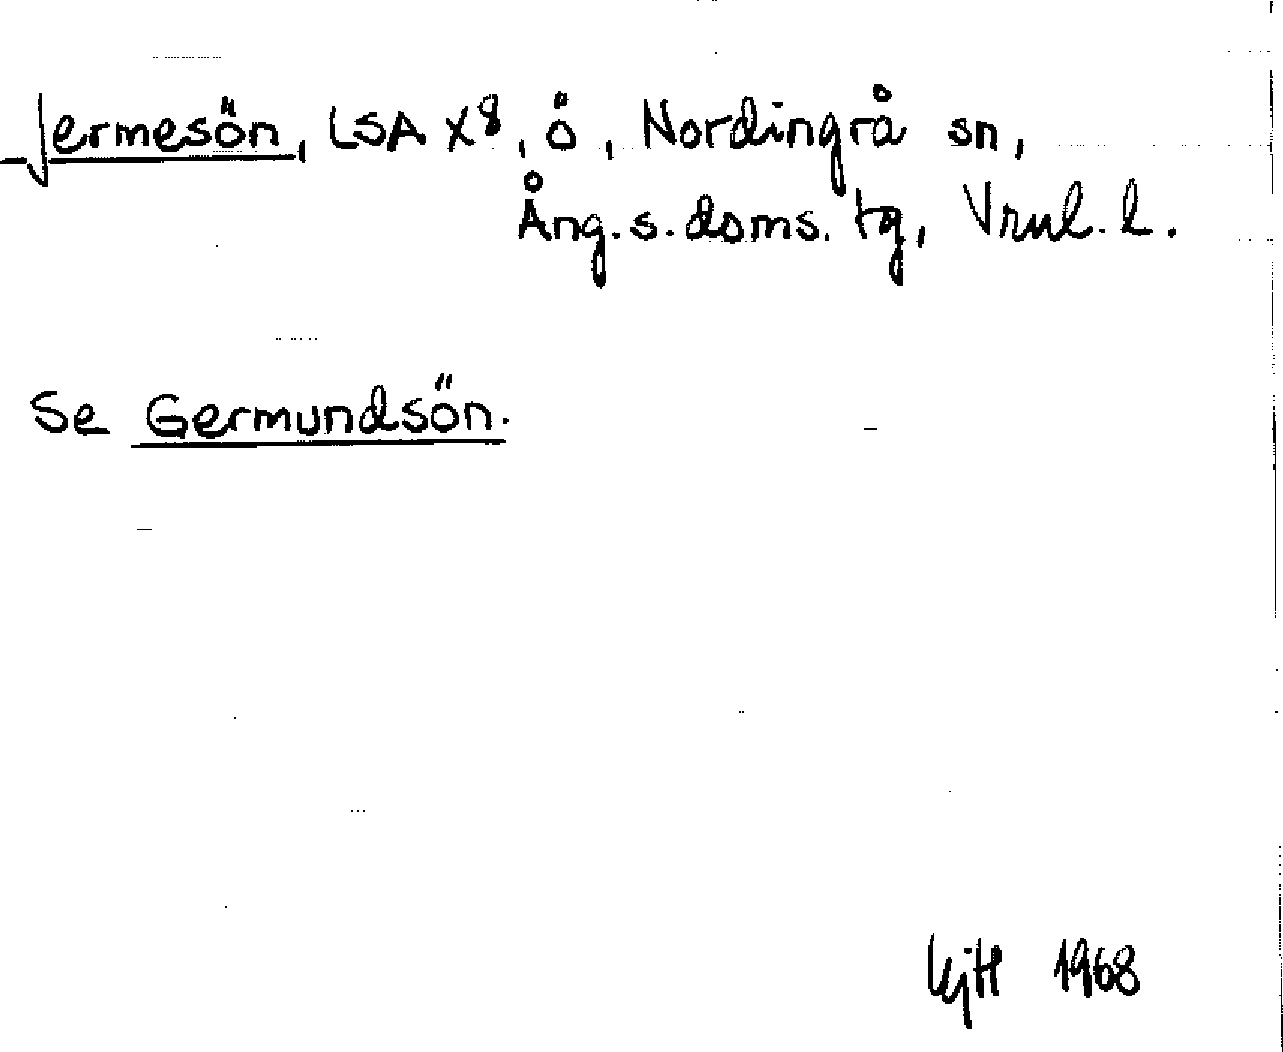 Jermesön, LSA X8, ö, Nordingrå sn,
Ång. s. doms. tg, Vrnl. l.
Se Germundsön.
1968